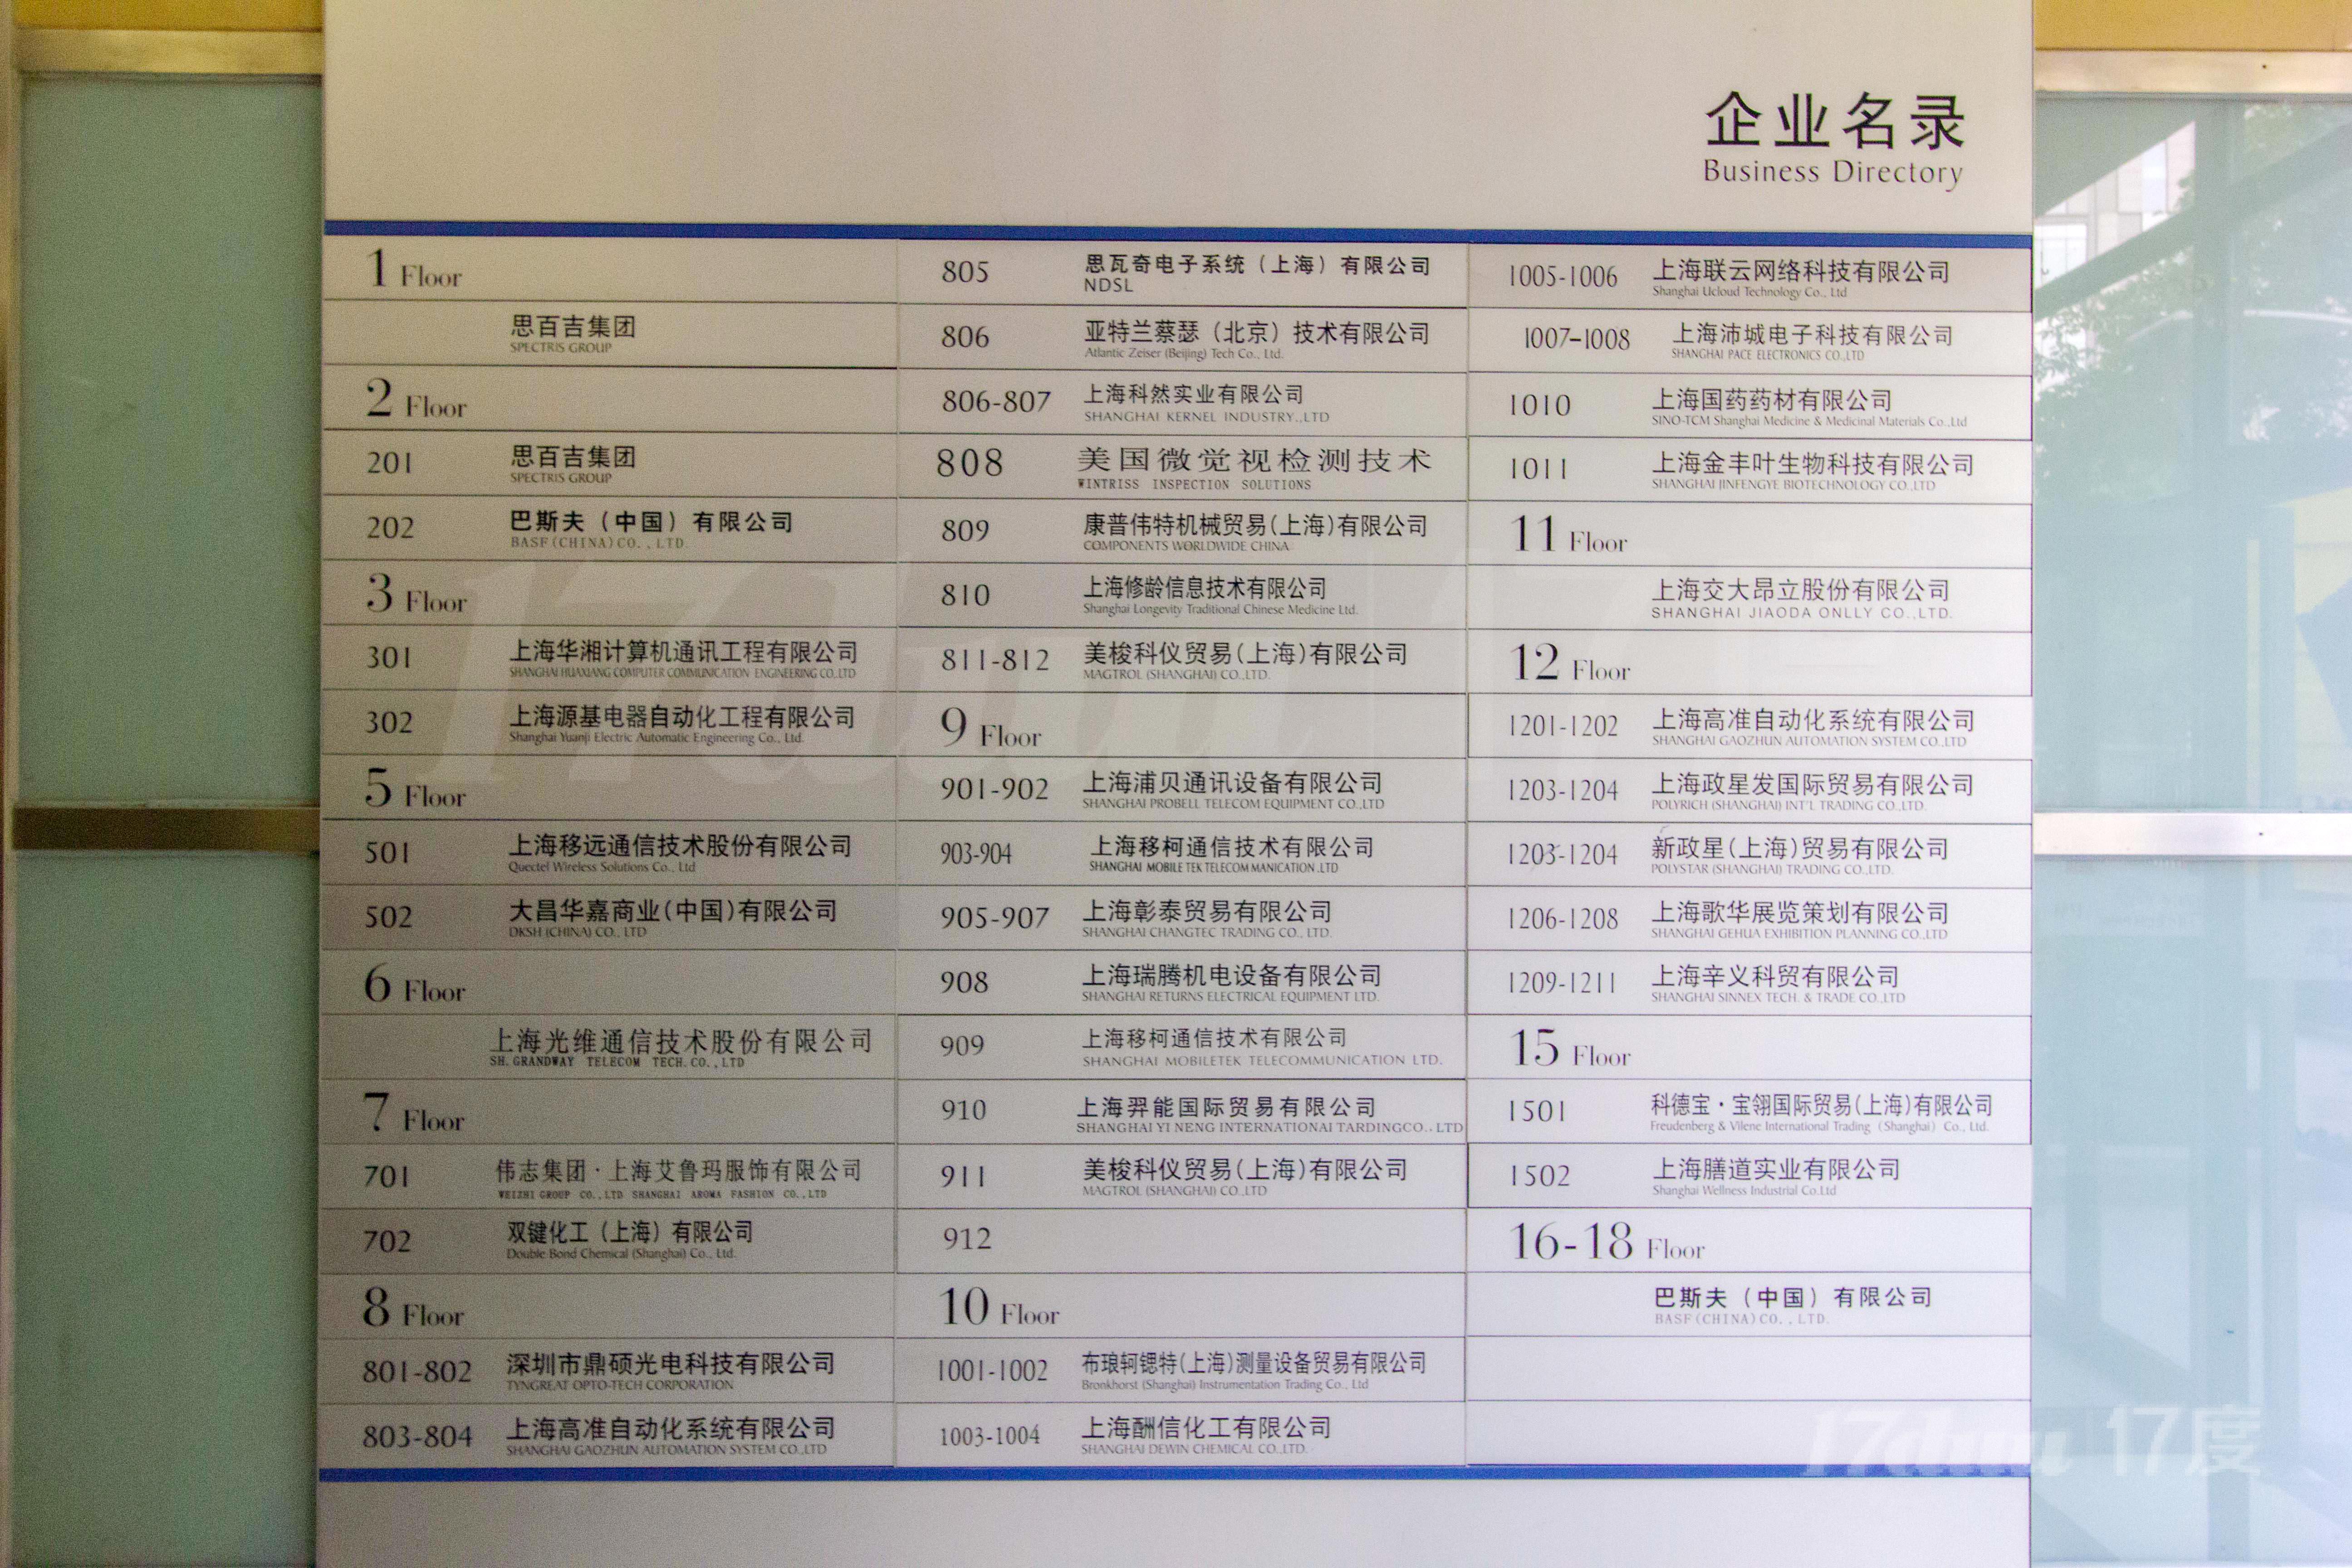 企业名录
Business Directory
1 Floor
思百吉集团
SPECTRIS GROUP
2 Floor
201 思百吉集团
SPECTRIS GROUP
202 巴斯夫（中国）有限公司
BASF(CHINA)CO.,LTD.
3 Floor
301 上海华湘计算机通讯工程有限公司
SHANGHAI HUAXIANG COMPUTER COMMUNICATION ENGINEERING CO.,LTD
302 上海源基电器自动化工程有限公司
Shanghai Yuanji Electric Automatic Engineering Co., Ltd.
5 Floor
501 上海移远通信技术股份有限公司
Quectel Wireless Solutions Co., Ltd
502 大昌华嘉商业(中国)有限公司
DKSH (CHINA) CO., LTD
6 Floor
上海光维通信技术股份有限公司
SH.GRANDWAY TELECOM TECH.CO.,LTD
7 Floor
701 伟志集团·上海艾鲁玛服饰有限公司
WEIZHI GROUP CO.,LTD SHANGHAI AROMA FASHION CO.,LTD
702 双键化工（上海）有限公司
Double Bond Chemical (Shanghai) Co., Ltd.
8 Floor
801-802 深圳市鼎硕光电科技有限公司
TYNGREAT OPTO-TECH CORPORATION
803-804 上海高准自动化系统有限公司
SHANGHAI GAOZHUN AUTOMATION SYSTEM CO.,LTD
805 思瓦奇电子系统（上海）有限公司
NDSL
806 亚特兰蔡瑟（北京）技术有限公司
Atlantic Zeiser (Beijing) Tech Co., Ltd.
806-807 上海科然实业有限公司
SHANGHAI KERNEL INDUSTRY.,LTD
808 美国微觉视检测技术
WINTRISS INSPECTION SOLUTIONS
809 康普伟特机械贸易(上海)有限公司
COMPONENTS WORLDWIDE CHINA
810 上海修龄信息技术有限公司
Shanghai Longevity Traditional Chinese Medicine Ltd.
811-812 美梭科仪贸易(上海)有限公司
MAGTROL (SHANGHAI) CO.,LTD.
9 Floor
901-902 上海浦贝通讯设备有限公司
SHANGHAI PROBELL TELECOM EQUIPMENT CO.,LTD
903-904 上海移柯通信技术有限公司
SHANGHAI MOBILE TEK TELECOM MANICATION .LTD
905-907 上海彰泰贸易有限公司
SHANGHAI CHANGTEC TRADING CO., LTD.
908 上海瑞腾机电设备有限公司
SHANGHAI RETURNS ELECTRICAL EQUIPMENT LTD.
909 上海移柯通信技术有限公司
SHANGHAI MOBILETEK TELECOMMUNICATION LTD.
910 上海羿能国际贸易有限公司
SHANGHAI YI NENG INTERNATIONAI TARDINGCO.. LTD
911 美梭科仪贸易(上海)有限公司
MAGTROL (SHANGHAI) CO.,LTD
912
10 Floor
1001-1002 布琅轲锶特(上海)测量设备贸易有限公司
Bronkhorst (Shanghai) Instrumentation Trading Co., Ltd
1003-1004 上海酬信化工有限公司
SHANGHAI DEWIN CHEMICAL CO.,LTD.
1005-1006 上海联云网络科技有限公司
Shanghai Ucloud Technology Co., Ltd
1007-1008 上海沛城电子科技有限公司
SHANGHAI PACE ELECTRONICS CO.,LTD
1010 上海国药药材有限公司
SINO-TCM Shanghai Medicine & Medicinal Materials Co.,Ltd
1011 上海金丰叶生物科技有限公司
SHANGHAI JINFENGYE BIOTECHNOLOGY CO.,LTD
11 Floor
上海交大昂立股份有限公司
SHANGHAI JIAODA ONLLY CO.,LTD.
12 Floor
1201-1202 上海高准自动化系统有限公司
SHANGHAI GAOZHUN AUTOMATION SYSTEM CO.,LTD
1203-1204 上海政星发国际贸易有限公司
POLYRICH (SHANGHAI) INT'L TRADING CO.,LTD.
1203-1204 新政星(上海)贸易有限公司
POLYSTAR (SHANGHAI) TRADING CO.,LTD.
1206-1208 上海歌华展览策划有限公司
SHANGHAI GEHUA EXHIBITION PLANNING CO.,LTD
1209-1211 上海辛义科贸有限公司
SHANGHAI SINNEX TECH. & TRADE CO.,LTD
15 Floor
1501 科德宝·宝翎国际贸易(上海)有限公司
Freudenberg & Vilene International Trading (Shanghai) Co., Ltd.
1502 上海膳道实业有限公司
Shanghai Wellness Industrial Co.Ltd
16-18 Floor
巴斯夫（中国）有限公司
BASF(CHINA)CO.,LTD.
17dumu 17度